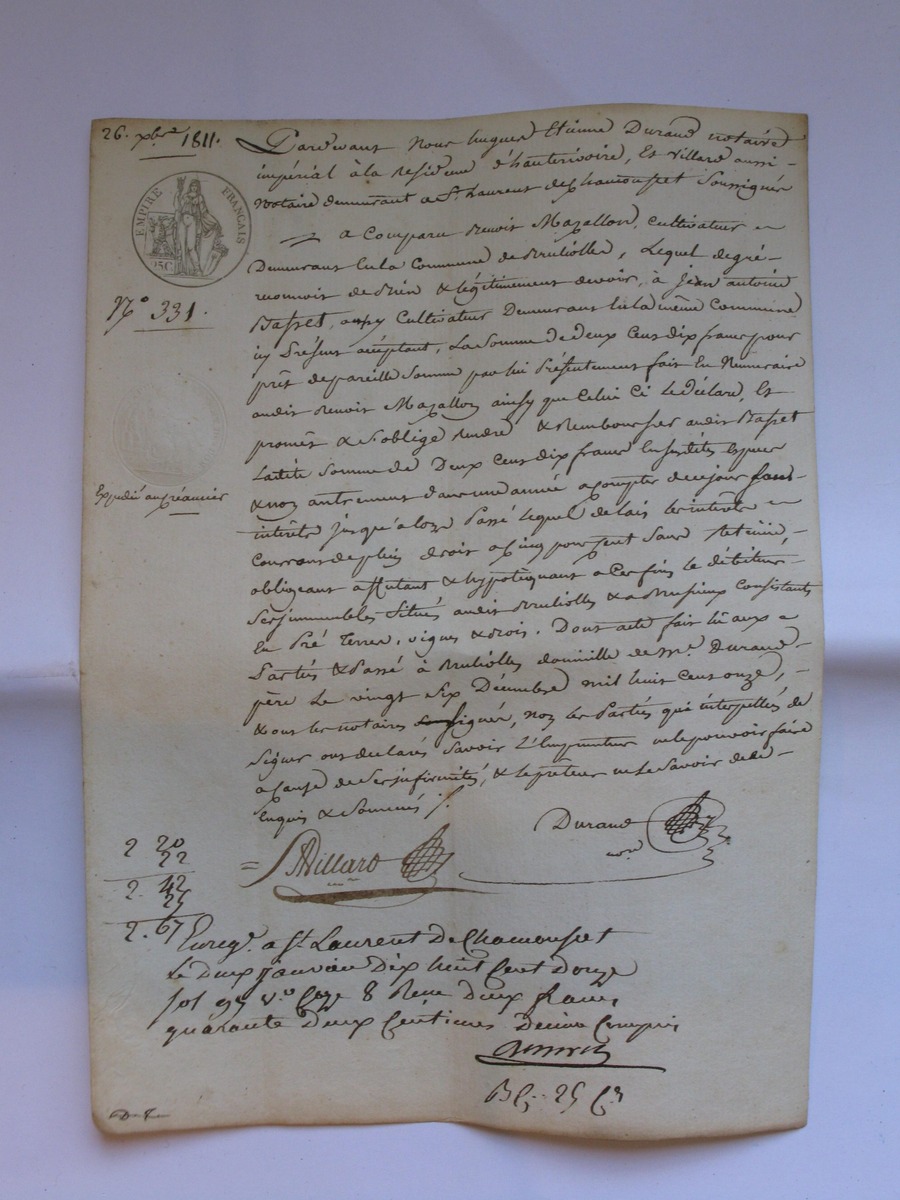 26. xbre 1811.
EMPIRE FRANÇAIS
25C
N° 331.
Expedié au créancier
Pardevant Nous hugues Etienne Durand notaire
impérial à la Residence d'hauterivoire, Et Villard aussi
Notaire demeurant a St. Laurent de chamousset Soussignés
a Comparu Benoit Mazallon, cultivateur
Demeurant En la Commune de Brulioles, Lequel de gré
reconnoit de Bien & légitimement devoir, à Jean antoine
Basset, aussy Cultivateur Demeurant En la même Commune
icy Présent acceptant, La Somme de deux Cent dix francs pour
prêt de pareille Somme par lui Présentement fait En Numeraire
audit Benoit Mazallon ainsy que Celui Ci Le déclare, Et
promet & S'oblige Rendre & Rembourser audit Basset
Ladite Somme de Deux Cent dix francs En susdites Especes
& non autrement dans une année a compter de ce jour sans
intérêts jusqu'alors Passé Lequel délais les intérêts
Courront de plein droit a Cinq pour Cent Sans Retenue,
obligeant affectant & hypotéquant a Ces fins le débiteur
Ses immeubles Situés audit Brulioles & a Brusieux Consistants
En Pré Terres, vignes & Bois. Dont acte fait lû aux
Parties & Passé à Brulioles domicile de Mr. Durand
père Le vingt Six Décembre mil huit Cent onze,
& ont les notaires Signés, non les Parties qui interpellés de
Signer ont déclarés Savoir L'Emprunteur ne le pouvoir faire
a Cause de Ses infirmités, & le prêteur ne le Savoir de ce
Enquis & Sommés
Durand
nre
Villard
2 20
22
2. 42
25
2. 67
Enregé. a St Laurent De Chamousset
Le Deux janvier Dix huit Cent Douze
fol 95 vo Case 8 Reçu Deux francs
quarante Deux Centimes Decime Compris
25 Cs